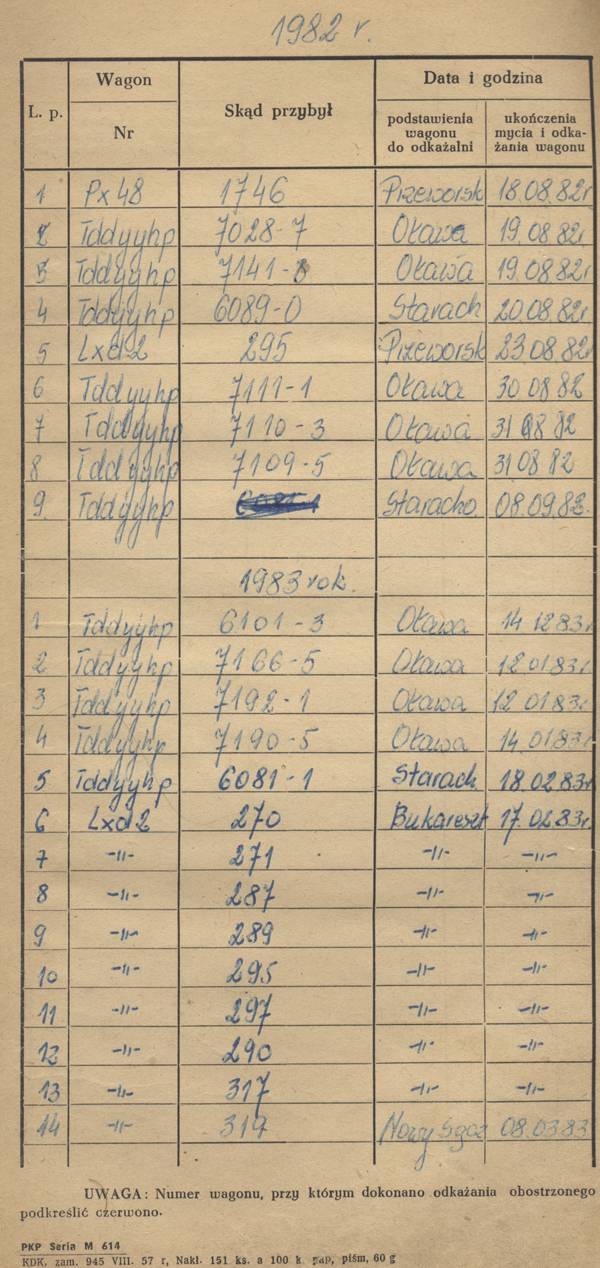 1982 r.
L. p. Wagon Nr Skąd przybył Data i godzina
podstawienia wagonu do odkażalni ukończenia mycia i odka-
żania wagonu
1 Px48 1746 Przeworsk 18.08.82r
2 Tddyyhp 7028-7 Oława 19.08.82r
3 Tddyyhp 7141- Oława 19.08.82r
4 Tddyyhp 6089-0 Starach 20.08.82r
5 Lxd2 295 Przeworsk 23.08.82r
6 Tddyyhp 7111-1 Oława 30 08 82
7 Tddyyhp 7110-3 Oława 31 08 82
8 Tddyyhp 7109-5 Oława 31 08 82
9. Tddyyhp Staracho 08.09.82.
1983 rok.
1 Tddyyhp 6101-3 Oława 14 12 83r
2 Tddyyhp 7166-5 Oława 12 01 83r
3 Tddyyhp 7192-1 Oława 12 01 83r
4 Tddyyhp 7190-5 Oława 14 01 83r
5 Tddyyhp 6081-1 Starach 18.02 83r
6 Lxd2 270 Bukareszt 17.02.83r.
7 -11- 271 -11- -11-
8 -11- 287 -11- -11-
9 -11- 289 -11- -11-
10 -11- 295 -11- -11-
11 -11- 297 -11- -11-
12 -11- 290 -11- -11-
13 -11- 317 -11- -11-
14 -11- 319 Nowy Sącz 08.03.83
UWAGA: Numer wagonu, przy którym dokonano odkażania obostrzonego
podkreślić czerwono.
PKP Seria M 614
KDK. zam. 945 VIII. 57 r, Nakł. 151 ks. a 100 k. pap, piśm, 60 g